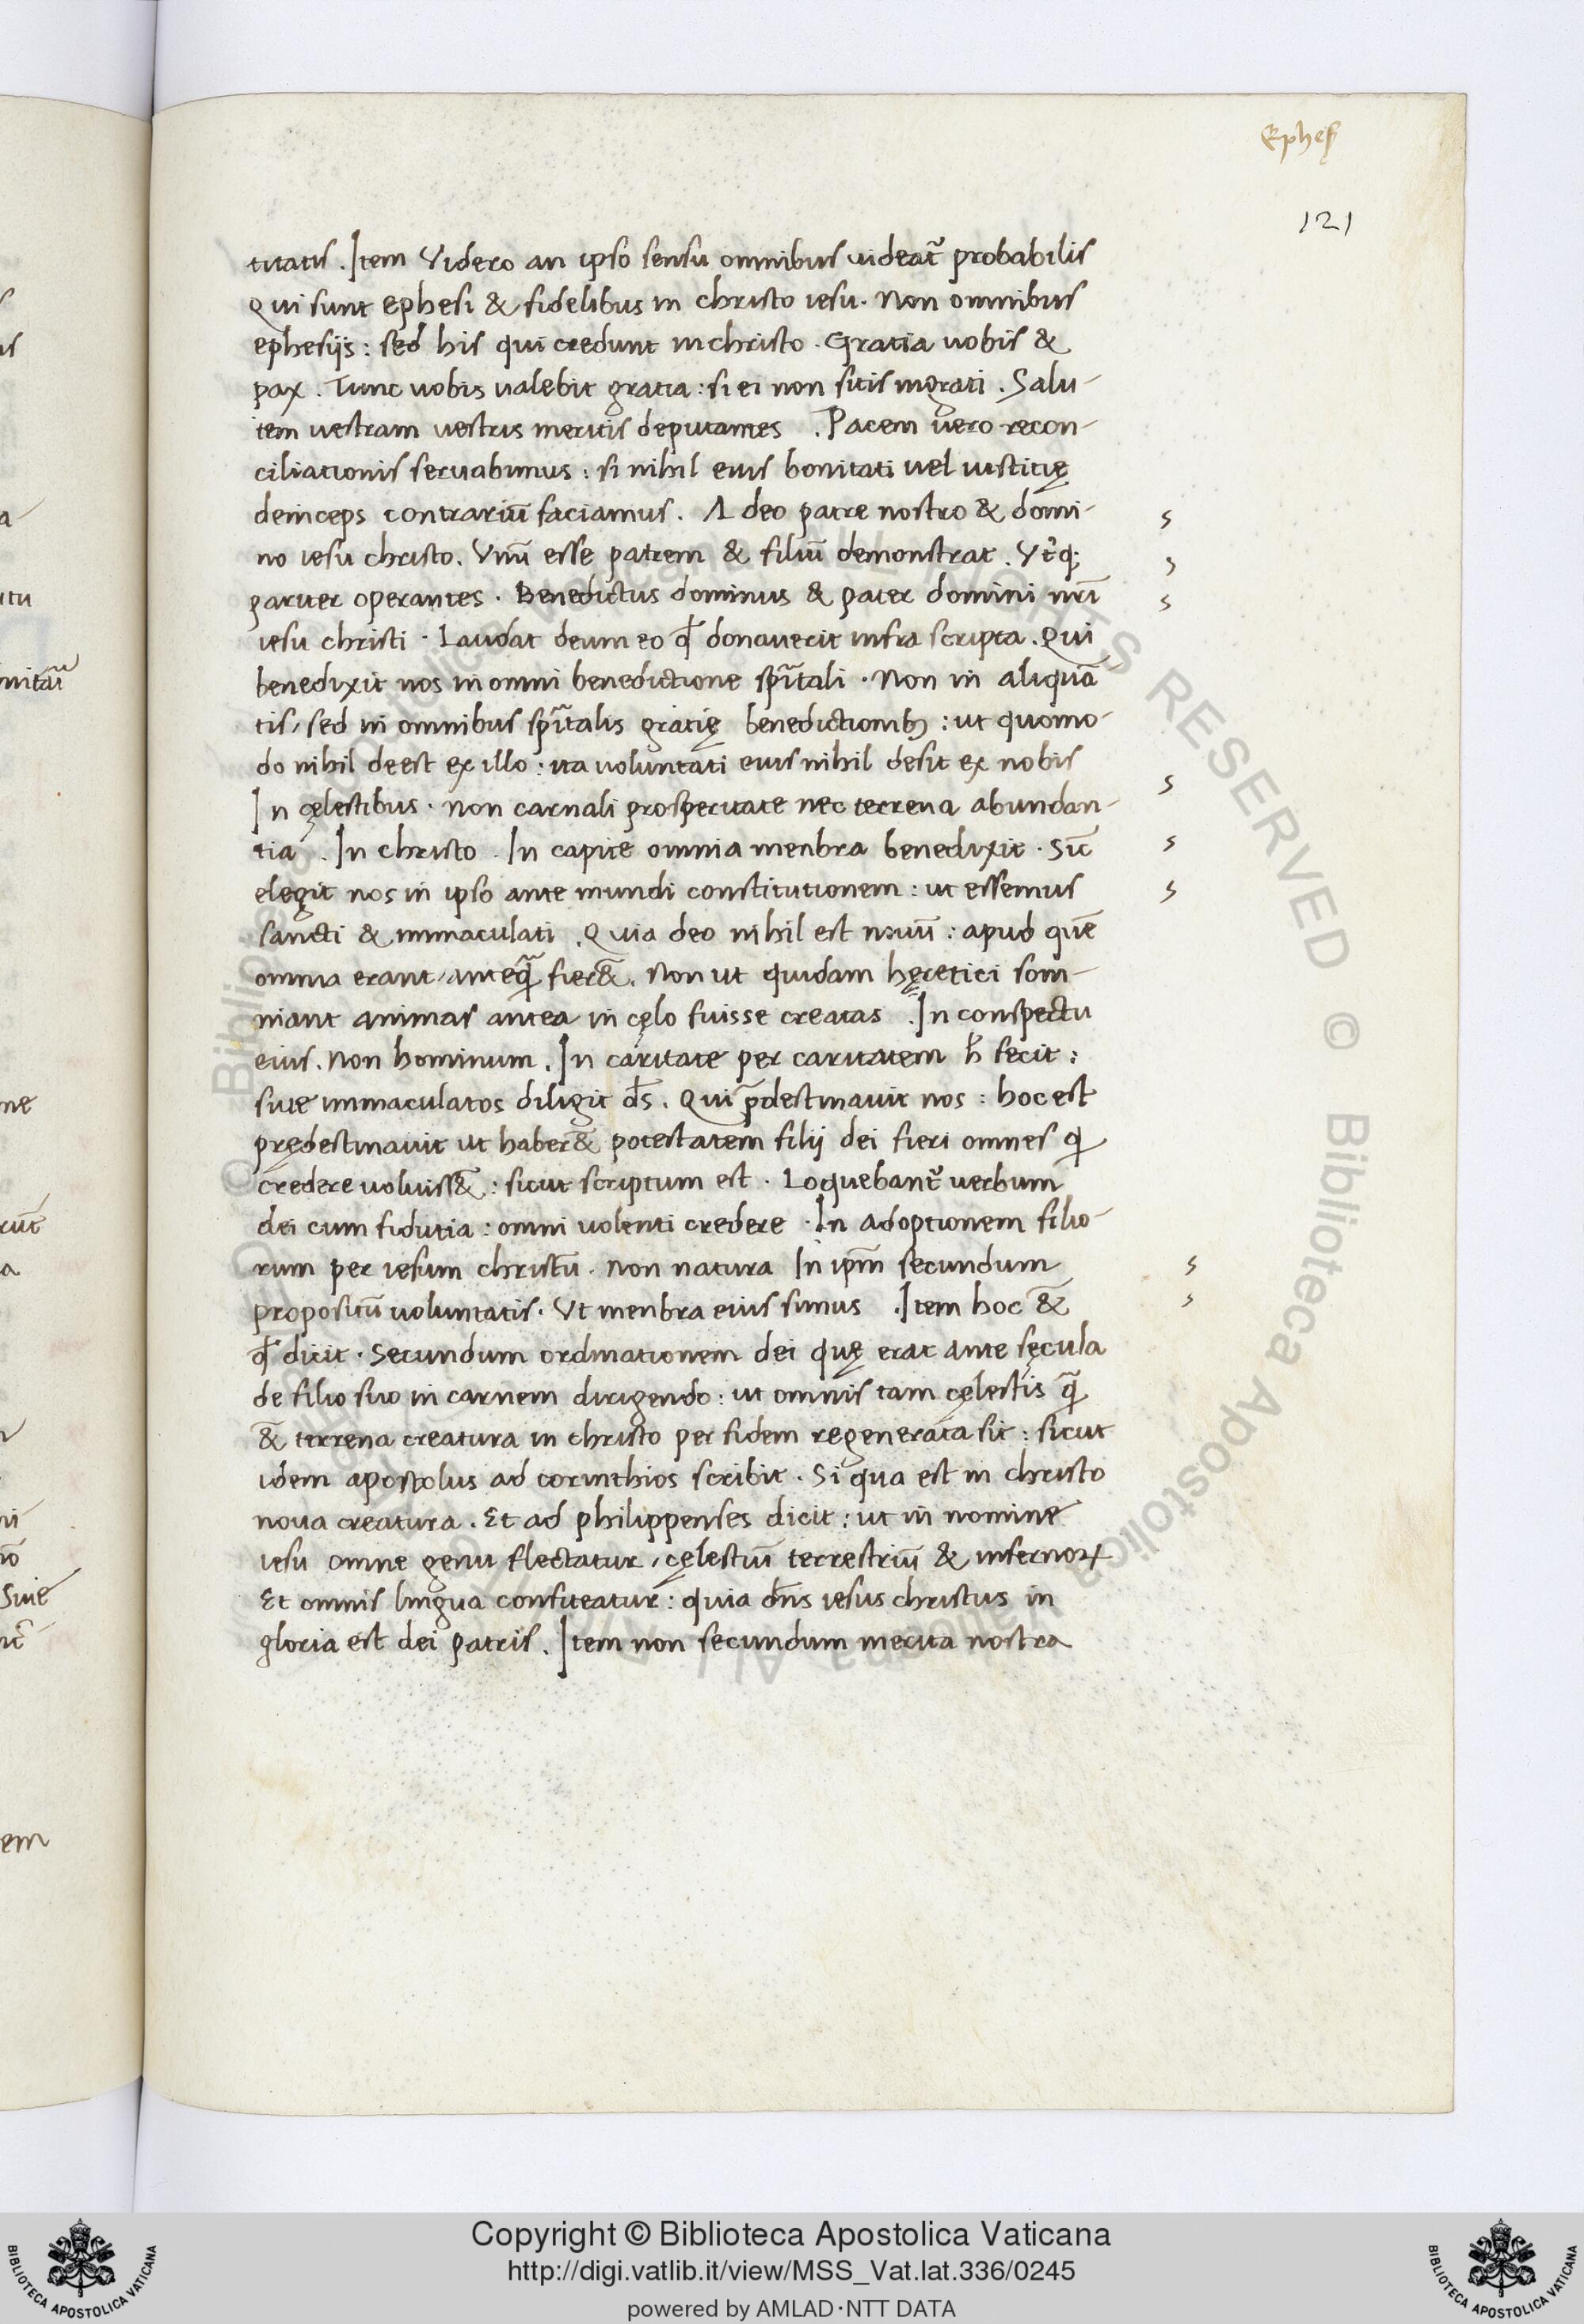 Ephes̄
121
titatis. Item Videro an ipso sensu omnibus uideat̃ probabilis
Qui sunt ephesi & fidelibus in christo iesu. Non omnibus
ephesijs: sed his qui credunt in christo. Gratia uobis &
pax. Tunc uobis ualebit gratia: si ei non sitis ingrati. Salu-
tem uestram uestris meritis deputantes. Pacem uero recon-
ciliationis seruabimus: si nihil eius bonitati uel iustitię
deinceps contrariũ faciamus. A deo patre nostro & domi-
no iesu christo. Vnũ esse patrem & filiũ demonstrat. Vt̃q;
pariter operantes. Benedictus dominus & pater domini nr̃i
iesu christi. Laudat deum eo qđ donauerit infra scripta. Qui
benedixit nos in omni benedictione sp̃itali. Non in aliquã
tis, sed in omnibus sp̃italis gratię benedictionibꝫ: ut quomo-
do nihil deest ex illo: ita voluntati eius nihil desit ex nobis
In cęlestibus. Non carnali prosperitate nec terrena abundan-
tia. In christo. In capite omnia menbra benedixit. Sic̃
elegit nos in ipso ante mundi constitutionem: ut essemus
sancti & immaculati. Quia deo nihil est nouũ: apud quẽ
omnia erant, anteq̃ fier&̃. Non ut quidam hęretici som-
niant animas antea in cęlo fuisse creatas. In conspectu
eius. Non hominum. In caritate per caritatem h̃ fecit:
siue immaculatos diligit d̃s. Qui p̃destinauit nos: hoc est
prędestinauit ut haber&̃ potestatem filij dei fieri omnes q̃
credere voluiss&̃: sicut scriptum est. Loquebant̃ uerbum
dei cum fidutia: omni uolenti credere. In adoptionem filio-
rum per iesum christũ. Non natura In ip̃m secundum
propositũ voluntatis. Ut menbra eius simus. Item hoc &̃
qđ dicit. Secundum ordinationem dei quę erat ante sęcula
de filio suo in carnem dirigendo: ut omnis tam cęlestis q̃
&̃ terrena creatura in christo per fidem regenerata sit: sicut
idem apostolus ad corinthios scribit. Si qua est in christo
noua creatura. Et ad philippenses dicit: ut in nomine
iesu omne genu flectatur, cęlestiũ terrestriũ & infernoꝝ
Et omnis lingua confiteatur: quia dñs iesus christus in
gloria est dei patris. Item non secundum merita nostra
Copyright © Biblioteca Apostolica Vaticana
http://digi.vatlib.it/view/MSS_Vat.lat.336/0245
powered by AMLAD·NTT DATA